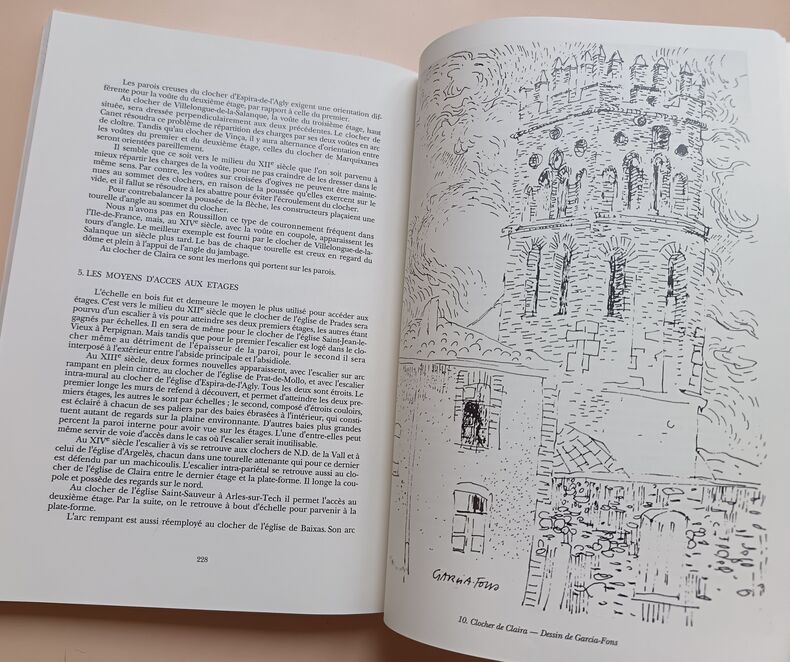 Les parois creuses du clocher d'Espira-de-l'Agly exigent une orientation dif-
férente pour la voûte du deuxième étage, par rapport à celle du premier.
Au clocher de Villelongue-de-la-Salanque, la voûte du troisième étage, haut
située, sera dressée perpendiculairement aux deux précédentes. Le clocher de
Canet résoudra ce problème de répartition des charges par ses deux voûtes en arc
de cloître. Tandis qu'au clocher de Vinça, il y aura alternance d'orientation entre
les voûtes du premier et du deuxième étage, celles du clocher de Marquixanes
seront orientées pareillement.
Il semble que ce soit vers le milieu du XIIe siècle que l'on soit parvenu à
mieux répartir les charges de la voûte, pour ne pas craindre de les dresser dans le
même sens. Par contre, les voûtes sur croisées d'ogives ne peuvent être mainte-
nues au sommet des clochers, en raison de la poussée qu'elles exercent sur le
vide, et il fallut se résoudre à les abattre pour éviter l'écroulement du clocher.
Pour contrebalancer la poussée de la flèche, les constructeurs plaçaient une
tourelle d'angle au sommet du clocher.
Nous n'avons pas en Roussillon ce type de couronnement fréquent dans
l'Ile-de-France, mais, au XIVe siècle, avec la voûte en coupole, apparaissent les
tours d'angle. Le meilleur exemple est fourni par le clocher de Villelongue-de-la-
Salanque un siècle plus tard. Le bas de chaque tourelle est creux en regard du
dôme et plein à l'appui de l'angle du jambage.
Au clocher de Claira ce sont les merlons qui portent sur les parois.
5. LES MOYENS D'ACCES AUX ETAGES
L'échelle en bois fut et demeure le moyen le plus utilisé pour accéder aux
étages. C'est vers le milieu du XIIe siècle que le clocher de l'église de Prades sera
pourvu d'un escalier à vis pour atteindre ses deux premiers étages, les autres étant
gagnés par échelles. Il en sera de même pour le clocher de l'église Saint-Jean-le-
Vieux à Perpignan. Mais tandis que pour le premier l'escalier est logé dans le clo-
cher même au détriment de l'épaisseur de la paroi, pour le second il sera
interposé à l'extérieur entre l'abside principale et l'absidiole.
Au XIIIe siècle, deux formes nouvelles apparaissent, avec l'escalier sur arc
rampant en plein cintre, au clocher de l'église de Prat-de-Mollo, et avec l'escalier
intra-mural au clocher de l'église d'Espira-de-l'Agly. Tous les deux sont étroits. Le
premier longe les murs de refend à découvert, et permet d'atteindre les deux pre-
miers étages, les autres le sont par échelles ; le second, composé d'étroits couloirs,
est éclairé à chacun de ses paliers par des baies ébrasées à l'intérieur, qui consti-
tuent autant de regards sur la plaine environnante. D'autres baies plus grandes
percent la paroi interne pour avoir vue sur les étages. L'une d'entre-elles peut
même servir de voie d'accès dans le cas où l'escalier serait inutilisable.
Au XIVe siècle l'escalier à vis se retrouve aux clochers de N.D. de la Vall et à
celui de l'église d'Argelès, chacun dans une tourelle attenante qui pour ce dernier
est défendu par un machicoulis. L'escalier intra-pariétal se retrouve aussi au clo-
cher de l'église de Claira entre le dernier étage et la plate-forme. Il longe la cou-
pole et possède des regards sur le nord.
Au clocher de l'église Saint-Sauveur à Arles-sur-Tech il permet l'accès au
deuxième étage. Par la suite, on le retrouve à bout d'échelle pour parvenir à la
plate-forme.
L'arc rempant est aussi réemployé au clocher de l'église de Baixas. Son arc
228
GARCIA-FONS
10. Clocher de Claira — Dessin de Garcia-Fons